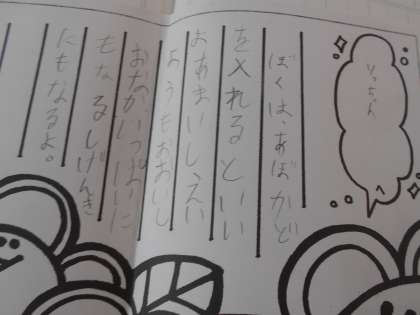 りっちゃん
ぼくは、あぼかど
を入れるといい
とおもいし、えい
ようもおおいし
おなかいっぱいに
もなるしげんき
にもなるよ。